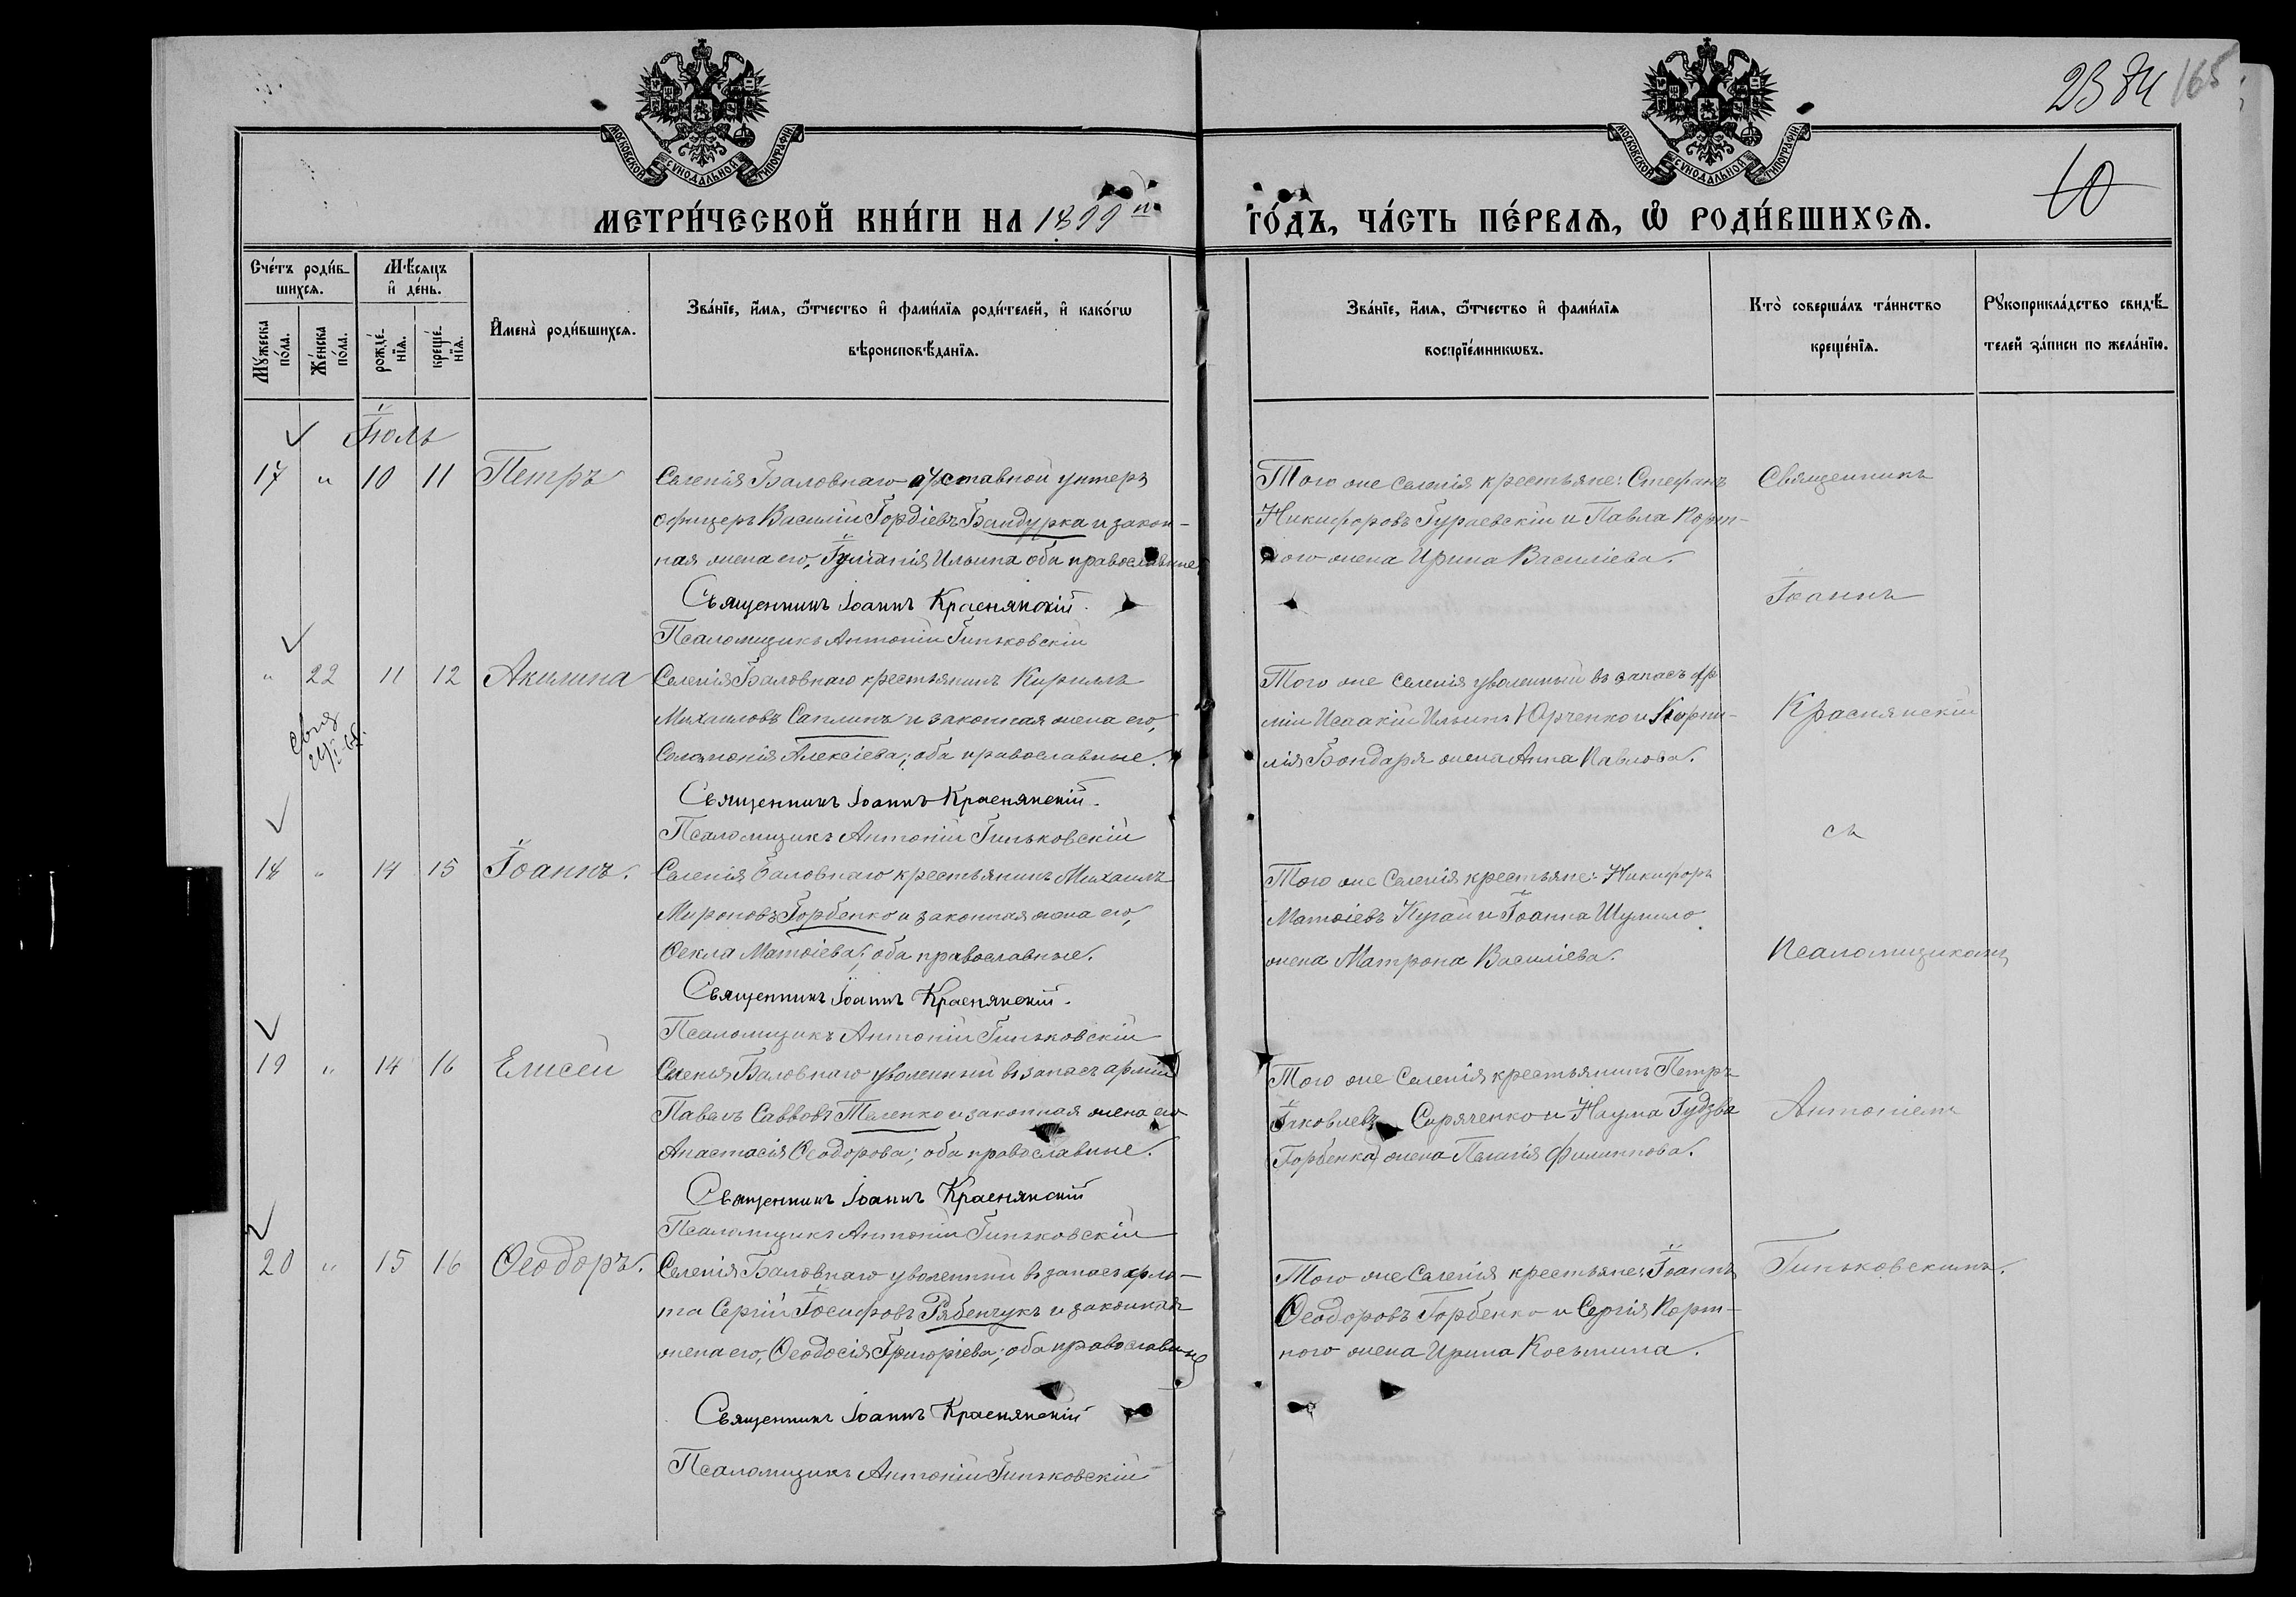 2384 165
МОСКОВСКОЙ СИНОДАЛЬНОЙ ТИПОГРАФІИ
МОСКОВСКОЙ СИНОДАЛЬНОЙ ТИПОГРАФІИ
10
МЕТРИ́ЧЕСКОЙ КНИ́ГИ НА 1899й
ГО́ДЪ, ЧА́СТЬ ПЕ́РВАѦ, Ѽ РОДИ́ВШИХСѦ.
Сче́тъ роди́в-
шихсѧ.
Мѣ́сѧцъ
и҆ де́нь.
Мꙋ́жеска
по́ла.
Же́нска
по́ла.
рожде́-
нїѧ.
креще́-
нїѧ.
И҆мена̀ роди́вшихсѧ.
Зва́нїе, и҆́мѧ, ѻ҆́тчество и҆ фами́лїѧ роди́телей, и҆ како́гѡ
вѣроисповѣ́данїѧ.
Зва́нїе, и҆́мѧ, ѻ҆́тчество и҆ фами́лїѧ
воспрїе́мникѡвъ.
Кто̀ соверша́лъ та́инство
креще́нїѧ.
Рꙋкоприкла́дство свидѣ́-
телей за́писи по жела́нїю.
Іюль
17 " 10 11 Петръ
Селенія Баловнаго отставной унтеръ
офицеръ Василій Гордіевъ Бандурка и закон-
ная жена его, Іуліанія Ильина оба православные
Священникъ Іоаннъ Краснянскій.
Псаломщикъ Антоній Гиньковскій
Того же селенія крестьяне: Стефанъ
Никифоровъ Гураевскій и Павла Порт-
ного жена Ирина Василіева.
Священникъ
Іоаннъ
" 22 11 12 Акилина
Селенія Баловнаго крестьянинъ Кириллъ
Михаиловъ Саплинъ и законная жена его,
Соломонія Алексіева; оба православные.
Священникъ Іоаннъ Краснянскій.
Псаломщикъ Антоній Гиньковскій
Того же селенія уволенный въ запасъ ар-
міи Исаакій Ильинъ Юрченко и Корни-
лія Бондаря жена Анна Павлова.
Краснянскій
съ
18 " 14 15 Іоаннъ.
Селенія Баловнаго крестьянинъ Михаилъ
Мироновъ Горбенко и законная жена его,
Ѳекла Матѳіева; оба православные.
Священникъ Іоаннъ Краснянскій.
Псаломщикъ Антоній Гиньковскій
Того же Селенія крестьяне: Никифоръ
Матѳіевъ Кугай и Іоанна Шумило
жена Матрона Василіева.
Псаломщикомъ
19 " 14 16 Елисей
Селенія Баловнаго уволенный въ запасъ арміи
Павелъ Савовъ Теленко и законная жена его
Анастасія Ѳеодорова; оба православные.
Священникъ Іоаннъ Краснянскій
Псаломщикъ Антоній Гиньковскій
Того же Селенія крестьянинъ Петръ
Іаковлевъ Сиряченко и Наума Гудзва
(Горбенка) жена Пелагія Филиппова.
Антоніемъ
20 " 15 16 Ѳеодоръ.
Селенія Баловнаго уволенный въ запасъ фло-
та Сергій Іосифовъ Рябенчукъ и законная
жена его, Ѳеодосія Григоріева; оба православные
Священникъ Іоаннъ Краснянскій
Псаломщикъ Антоній Гиньковскій
Того же Селенія крестьяне: Іоаннъ
Ѳеодоровъ Горбенко и Сергія Порт-
ного жена Ирина Косьмина.
Гиньковскимъ.